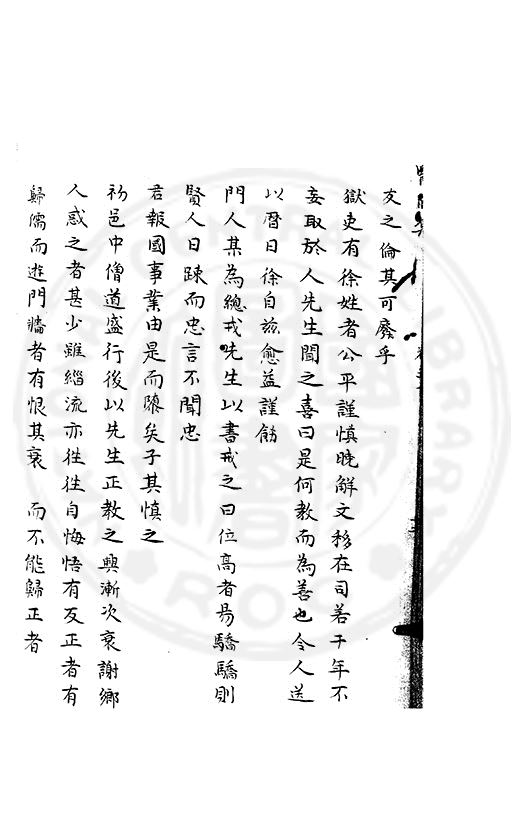 友之倫其可廢乎
獄吏有徐姓者公平謹慎曉解文移在司若干年不
妄取於人先生聞之喜曰是何教而為善也令人送
以曆日徐自茲愈益謹飭
門人某為總戎先生以書戒之曰位高者易驕驕則
賢人日踈而忠言不聞忠
君報國事業由是而隳矣子其慎之
初邑中僧道盛行後以先生正教之興漸次衰謝鄉
人惑之者甚少雖緇流亦徃徃自悔悟有反正者有
歸儒而遊門牆者有恨其衰 而不能歸正者